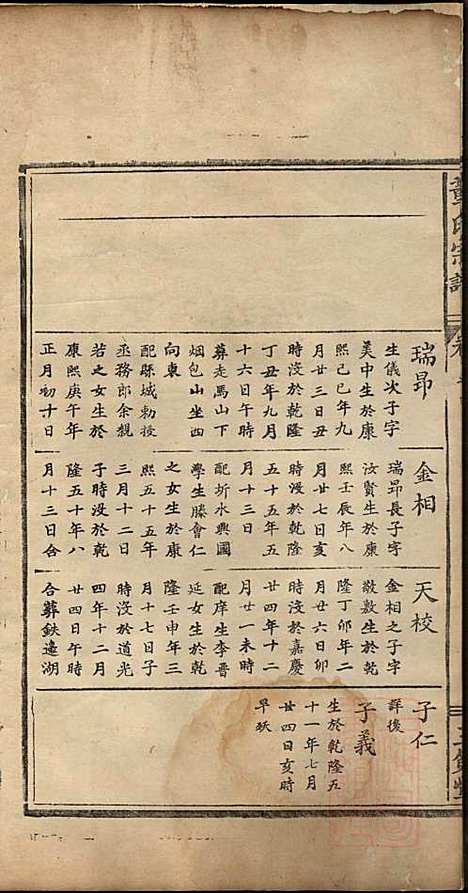 瑞昂
生儀次子字
美中生於康
熙己巳年九
月廿三日丑
時沒於乾隆
丁丑年九月
十六日午時
葬走馬山下
烟包山坐西
向東
配縣城勅授
丞務郎余覲
若之女生於
康熙庚午年
正月初十日
金相
瑞昂長子字
汝賢生於康
熙壬辰年八
月廿七日亥
時沒於乾隆
五十五年五
月十三日
配圻水興國
學生滕會仁
之女生於康
熙五十五年
三月十二日
子時沒於乾
隆五十年八
月十三日合
天校
金相之子字
敬敷生於乾
隆丁卯年二
月廿六日卯
時沒於嘉慶
廿四年十二
月廿一未時
配庠生李晋
延女生於乾
隆壬申年三
月十七日子
時沒於道光
四年十二月
廿四日午時
合葬鉄邊湖
子仁
詳後
子義
生於乾隆五
十一年七月
廿四日亥時
早殀